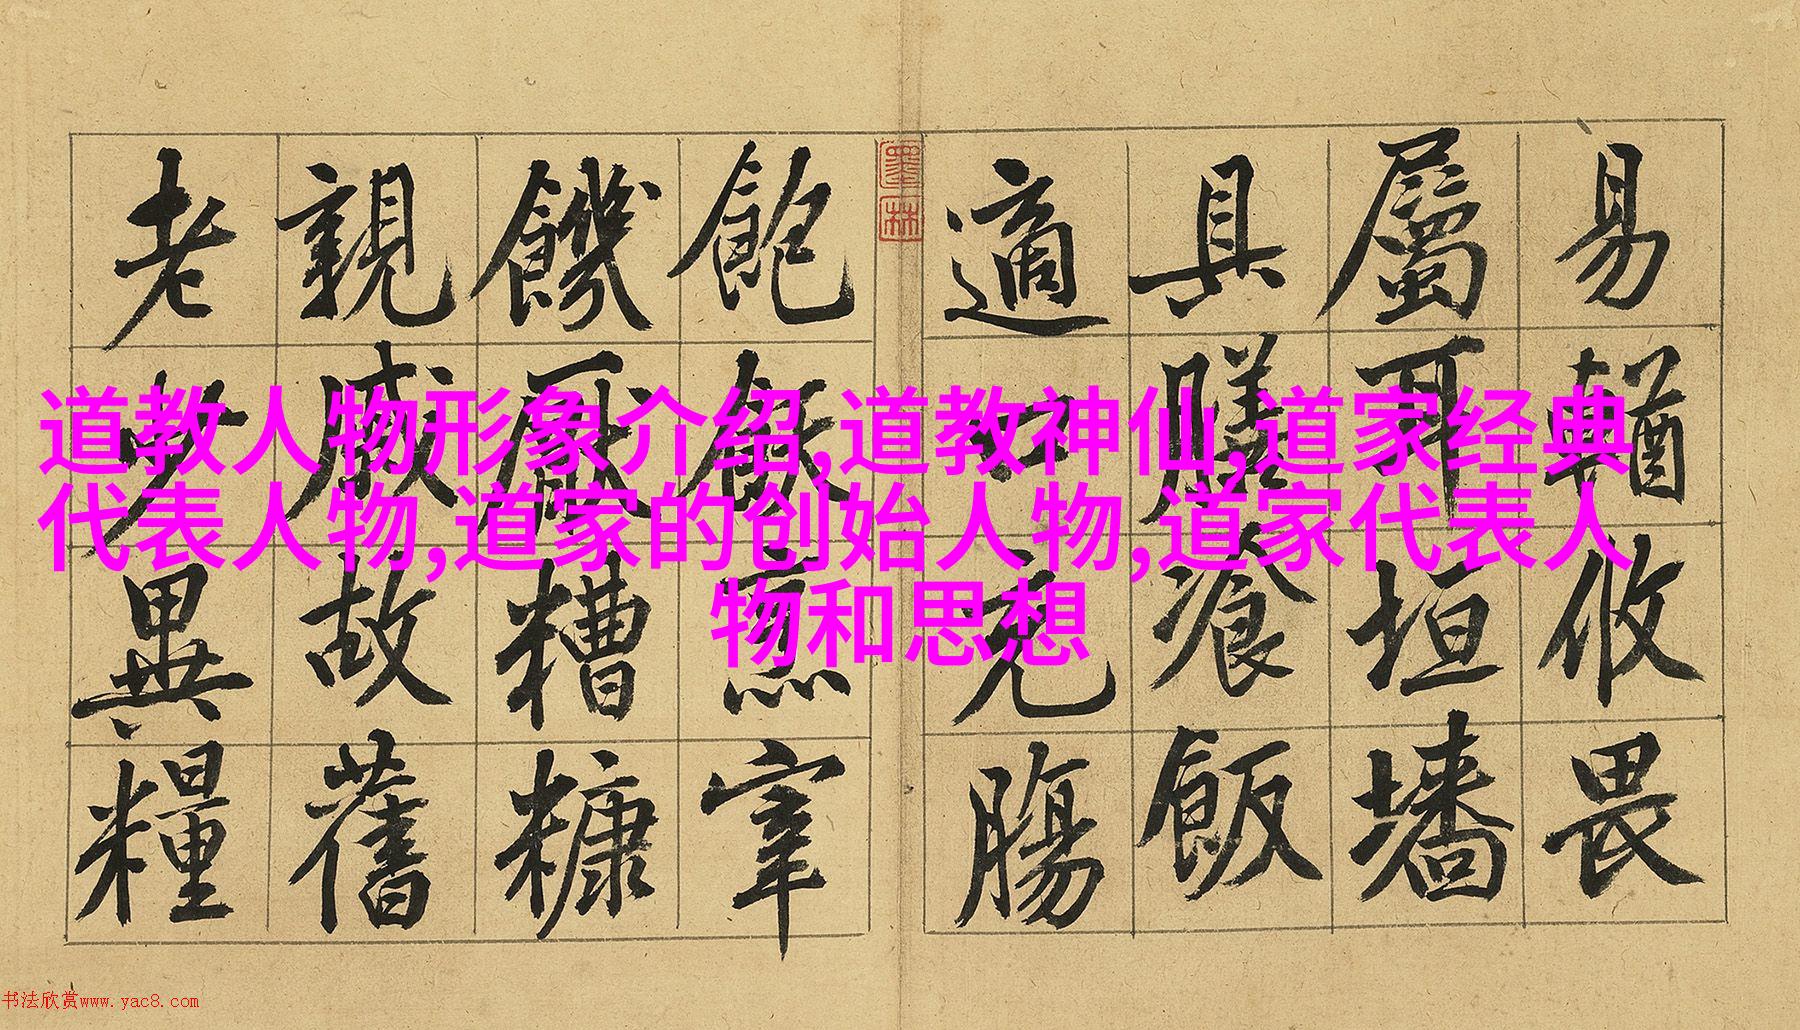 道教人物形象介绍,道教神仙,道家经典
代表人物,道家的创始人物,道家代表人
物和思想
易輶攸畏
屬耳垣墻
具膳湌飯
適口充腸
墨林
飽飫烹宰
饑厭糟糠
親戚故舊
老少異糧
书法欣赏www.yac8.com